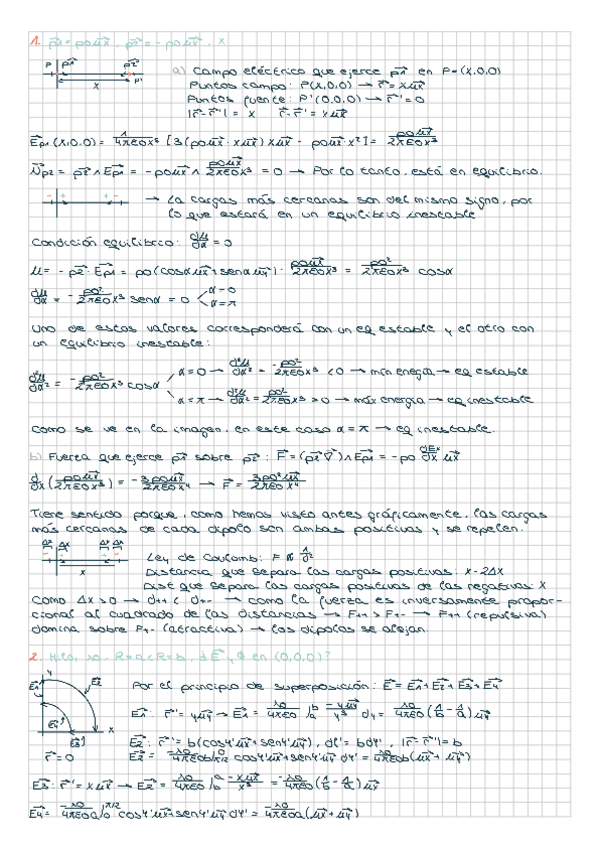 1. p⃗1 = p0 u⃗x , p⃗2 = - p0 u⃗x , x
P p⃗1 p⃗2 P' x
a) Campo eléctrico que ejerce p⃗1 en P=(x,0,0)
Puntos campo: P(x,0,0) → r⃗ = x u⃗x
Puntos fuente: P'(0,0,0) → r⃗' = 0
|r⃗ - r⃗'| = x r⃗ - r⃗' = x u⃗x
E⃗p1 (x,0,0) = 1/4πε0x⁵ [3(p0 u⃗x · x u⃗x) x u⃗x - p0 u⃗x · x²] = p0 u⃗x/2πε0x³
N⃗p2 = p⃗2 ∧ E⃗p1 = - p0 u⃗x ∧ p0 u⃗x/2πε0x³ = 0 → Por lo tanto, está en equilibrio.
- + + - → La cargas más cercanas son del mismo signo, por
lo que estará en un equilibrio inestable
Condición equilibrio: dU/dα = 0
U = - p⃗2 · E⃗p1 = p0 (cosα u⃗x + senα u⃗y) · p0 u⃗x/2πε0x³ = p0²/2πε0x³ cosα
dU/dα = - p0²/2πε0x³ senα = 0 α = 0
α = π
Uno de estos valores corresponderá con un eq estable y el otro con
un equilibrio inestable:
d²U/dα² = - p0²/2πε0x³ cosα α = 0 → d²U/dα² = - p0²/2πε0x³ < 0 → mín energía → eq estable
α = π → d²U/dα² = p0²/2πε0x³ > 0 → máx energía → eq inestable
Como se ve en la imagen, en este caso α = π → eq inestable.
b) Fuerza que ejerce p⃗1 sobre p⃗2 : F⃗ = (p⃗2 ∇⃗) ∧ E⃗p1 = - p0 dEx/dx u⃗x
d/dx (p0 u⃗x/2πε0x³) = - 3p0 u⃗x/2πε0x⁴ → F⃗ = 3p0² u⃗x/2πε0x⁴
Tiene sentido porque, como hemos visto antes gráficamente, las cargas
más cercanas de cada dipolo son ambas positivas y se repelen.
Δx Δx Δx Δx
- + + - x
Ley de Coulomb: F ∝ 1/d²
Distancia que separa las cargas positivas: x - 2Δx
Dist que separa las cargas positivas de las negativas: x
Como Δx > 0 → d++ < d+- → como la fuerza es inversamente propor-
cional al cuadrado de las distancias → F++ > F+- → F++ (repulsiva)
domina sobre F+- (atractiva) → los dipolos se alejan.
2. R=a < R=b , E⃗ y en (0,0,0)?
y E⃗1 E⃗2 E⃗4 E⃗3 x
r⃗ = 0
Por el principio de superposición: E⃗ = E⃗1 + E⃗2 + E⃗3 + E⃗4
E⃗1: r⃗' = y u⃗y → E⃗1 = λ0/4πε0 ∫a b - y u⃗y/y³ dy = λ0/4πε0 (1/b - 1/a) u⃗y
E⃗2: r⃗' = b(cosφ' u⃗x + senφ' u⃗y) , dl' = b dφ' , |r⃗ - r⃗'| = b
E⃗2 = -λ0/4πε0b ∫π/2 0 cosφ' u⃗x + senφ' u⃗y dφ' = λ0/4πε0b (u⃗x + u⃗y)
E⃗3: r⃗' = x u⃗x → E⃗2 = λ0/4πε0 ∫a b - x u⃗x/x³ = -λ0/4πε0 (1/b - 1/a) u⃗x
E⃗4 = -λ0/4πε0a ∫0 π/2 cosφ' u⃗x + senφ' u⃗y dφ' = λ0/4πε0a (u⃗x + u⃗y)